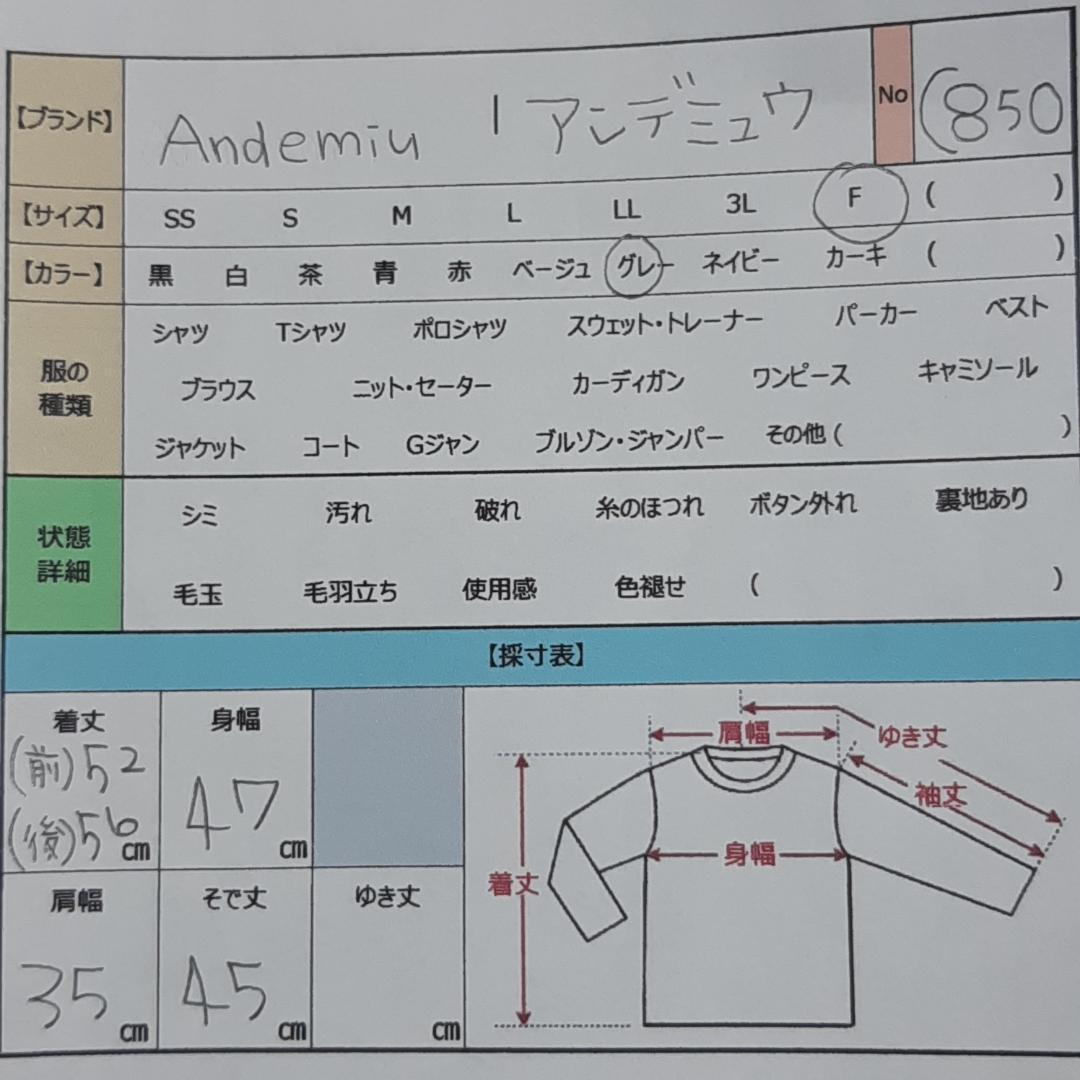 【ブランド】 Andemiu | アンデミュウ No (850
【サイズ】 SS S M L LL 3L F ( )
【カラー】 黒 白 茶 青 赤 ベージュ グレー ネイビー カーキ ( )
服の種類
シャツ Tシャツ ポロシャツ スウェット・トレーナー パーカー ベスト
ブラウス ニット・セーター カーディガン ワンピース キャミソール
ジャケット コート Gジャン ブルゾン・ジャンパー その他 ( )
状態詳細
シミ 汚れ 破れ 糸のほつれ ボタン外れ 裏地あり
毛玉 毛羽立ち 使用感 色褪せ ( )
【採寸表】
着丈 身幅
(前)52
(後)56 cm
47 cm
肩幅 そで丈 ゆき丈
35 cm 45 cm cm
肩幅
ゆき丈
袖丈
身幅
着丈